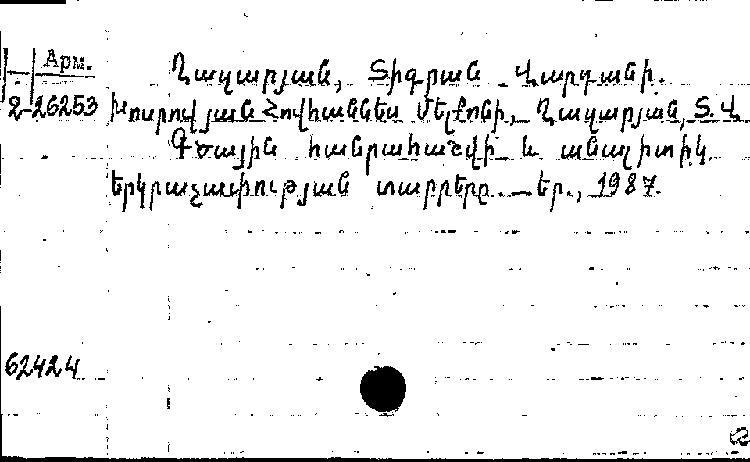 Арм.
Ղազարյան, Տիգրան Վարդանի.
2-26253
Խոսրովյան Հովհաննես Մելքոնի, Ղազարյան, Տ. Վ.
Գծային հանրահաշվի և անալիտիկ
երկրաչափության տարրերը. — Եր., 1987.
62424